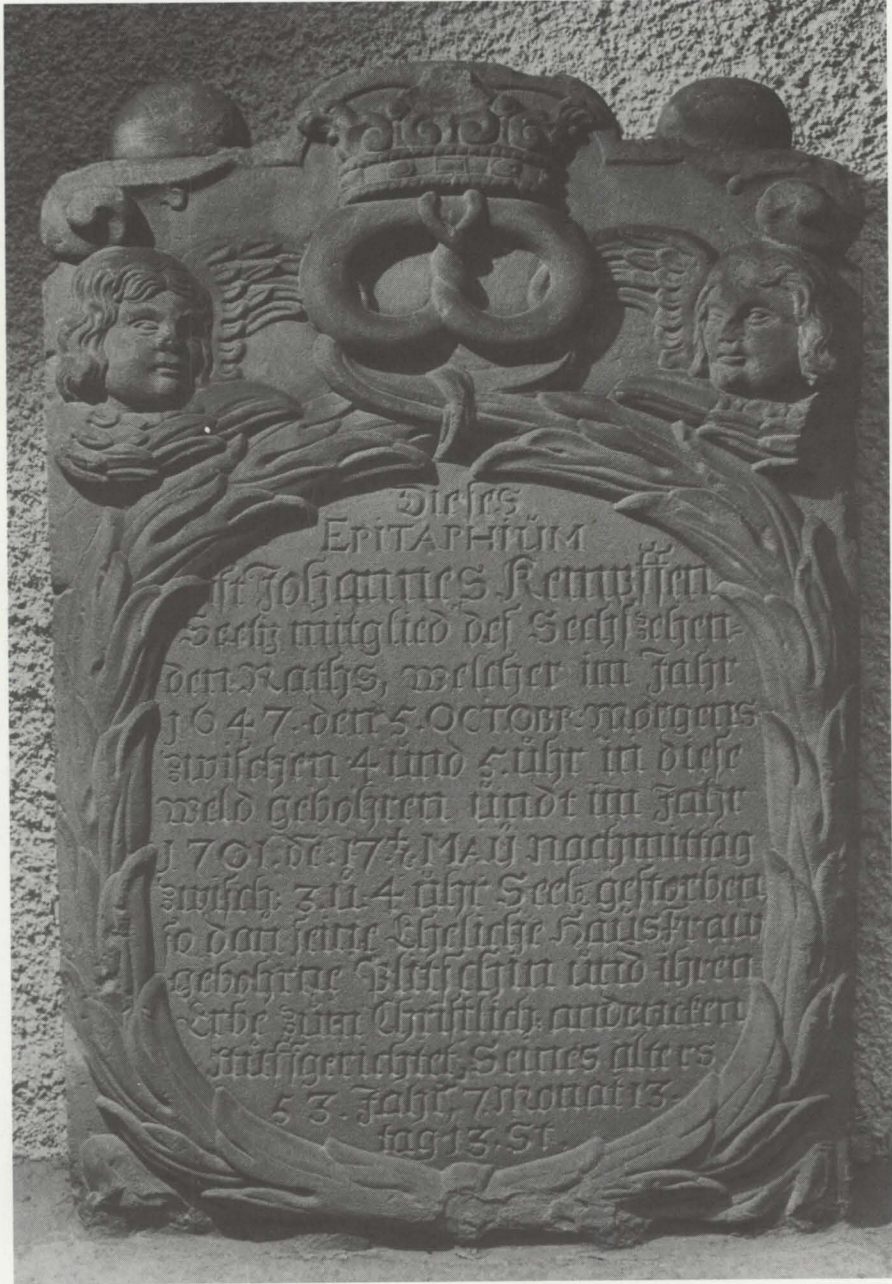 Dieses
EPITAPHIŬM
ist Johannes Kempffen
Seelz mitglied des Sechszehen-
den Raths, welcher im Jahr
1647. den 5. OCTOBR. Morgens
zwischen 4 ŭnd 5. ŭhr in diese
Weld gebohren ŭndt im Jahr
1701. dē. 17 MAY nachmittag
zwisch: 3. ŭ. 4 ŭhr Seel: gestorben
so dan seine Eheliche Haŭsfraw
gebohrne ŭnd ihren
Erbe zŭm Christlich: andencken
aŭffgerichtet, Seines alters
53. Jahr, 7. Monat 13.
tag 13. St.